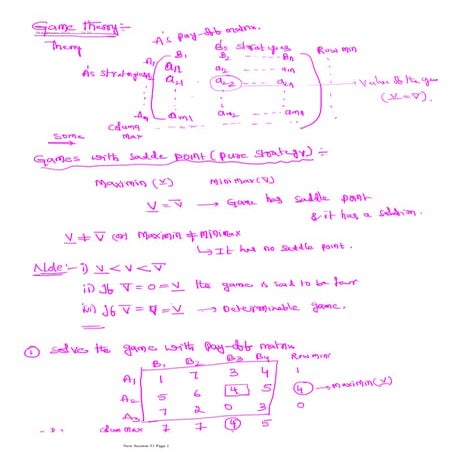 Game Theory :-
A's pay-off matrix.
Theory
B's strategies
Row min
B₁ B₂ Bn
A's strategies
A₁ a₁₁ a₁₂ a₁n
a₂₁ a₂₂ a₂n → Value of the game
(V̲ = V̅).
Am am₁ am₂ amn
column max
Some
Games with sadde point (pure strategy) :-
Maximin (V̲) minimax (V̅)
V̲ = V̅ → Game has saddle point
& it has a solution.
V̲ ≠ V̅ (or) Maximin ≠ minimax
↳ It has no saddle point.
Note :- i) V̲ < V < V̅
ii) If V̅ = 0 = V̲ the game is said to be fair
iii) If V̅ = V = V̲ → Determinable game.
① Solve the game with pay-off matrix
B₁ B₂ B₃ B₄ Row min
A₁ 1 7 3 4 1
A₂ 5 6 4 5 4 → maximin (V̲)
A₃ 7 2 0 3 0
colum max 7 7 4 5
New Section 71 Page 1